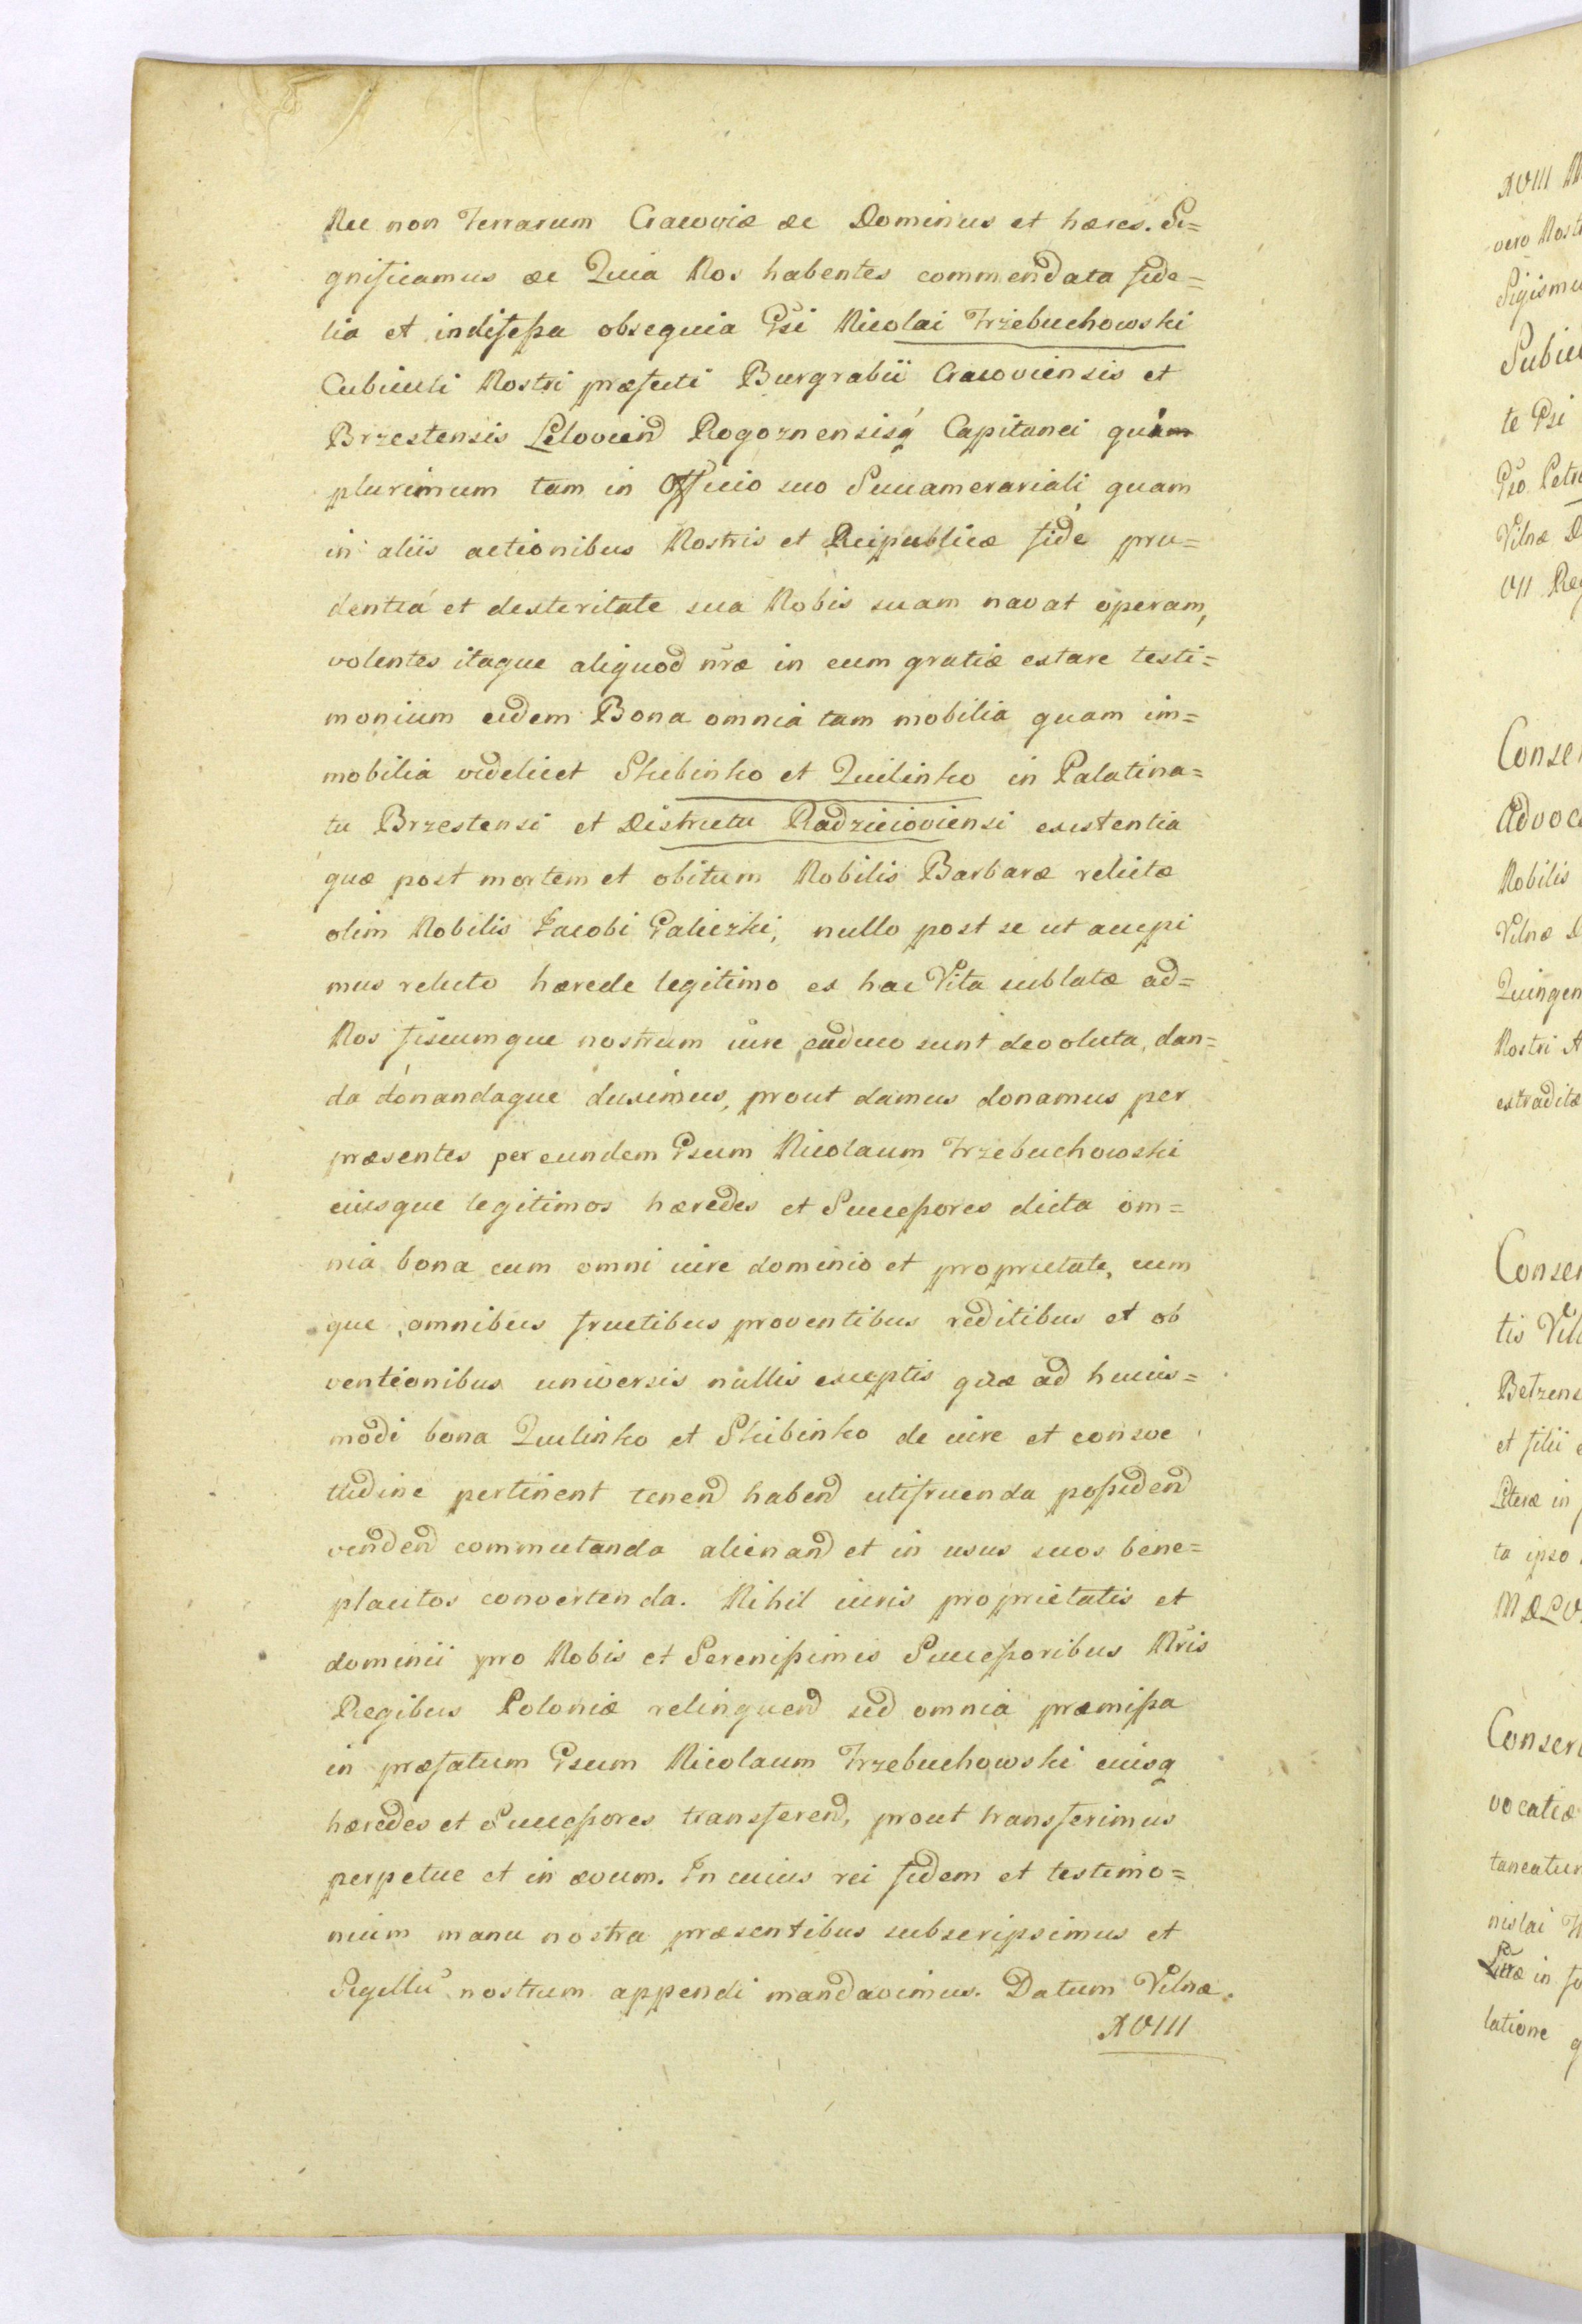 Nec non Terrarum Cracoviæ &c Dominus et hæres. Si=
gnificamus &c Quia Nos habentes commendata fide=
lia et indefessa obsequia Gsi Nicolai Trzebuchowski
Cubiculi Nostri præfecti Burgrabii Cracoviensis et
Brzestensis Leloviend Rogoznensisq Capitanei quam
plurimum tam in Officio suo Succamerariali quam
in aliis actionibus Nostris et Reipublicæ fide pru=
dentiá et dexteritate sua Nobis suam navat operam,
volentes itaque aliquod nræ in eum gratiæ extare testi=
monium eidem Bona omnia tam mobilia quam im=
mobilia videlicet Skibinko et Quilinko in Palatina=
tu Brzestensi et Districtu Radzieioviensi existentia
quæ post mortem et obitum Nobilis Barbaræ relictæ
olim Nobilis Jacobi Galiczki, nullo post se ut accepi
mus relicto hærede legitimo ex hac Vita sublatæ ad=
Nos fiscumque nostrum iure caduco sunt devoluta, dan=
da donandaque duximus, prout damus donamus per
præsentes per eundem Gsum Nicolaum Trzebuchowski
eiusque legitimos hæredes et Successores dicta om=
nia bona cum omni iure dominio et proprietate, cum
que omnibus fructibus proventibus reditibus et ob
ventionibus universis nullis exceptis quæ ad huius=
modi bona Quilinko et Skibinko de iure et consve
tudine pertinent tenend habend utifruenda possidend
vendend commutanda alienand et in usus suos bene=
placitos convertenda. Nihil iuris proprietatis et
dominii pro Nobis et Serenissimis Successoribus Nris
Regibus Poloniæ relinquend sed omnia præmissa
in præfatum Gsum Nicolaum Trzebuchowski eiusq
hæredes et Successores transferend, prout transferimus
perpetue et in ævum. In cuius rei fidem et testimo=
nium manu nostra præsentibus subscripsimus et
Sigillu nostrum appendi mandavimus. Datum Vilnæ.
XVIII
XVIII
vero
Vilnæ
VII
Advoc
Nobilis
Vilnæ
Nostri
extraditæ
tis
et filii
Literæ in
ta ipso
vocatiæ
taneatur
nislai
in
latione